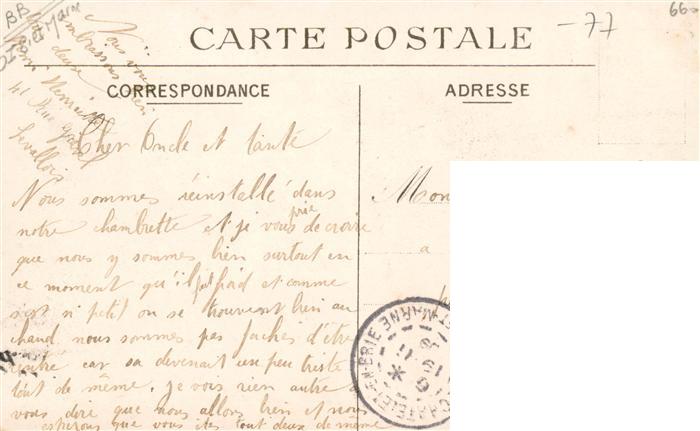 BB
-77
66
CARTE POSTALE
CORRESPONDANCE
ADRESSE
Nous vous
embrassons bien
deux
Henri
41 Rue
Levallois
Cher Oncle et tante
Nous sommes réinstallé dans
notre chambrette et je vous prie de croire
que nous y sommes bien surtout en
ce moment qu'il fait froid et comme
s'est si petit on se trouvent bien au
chaud nous sommes pas fachés d'être
rentré car sa devenait un peu triste
tout de même. je vois rien autre a
vous dire que nous allons bien et nous
esperons que vous êtes tout deux de même
Mon
a
CHATELET-EN-BRIE
ET-MARNE